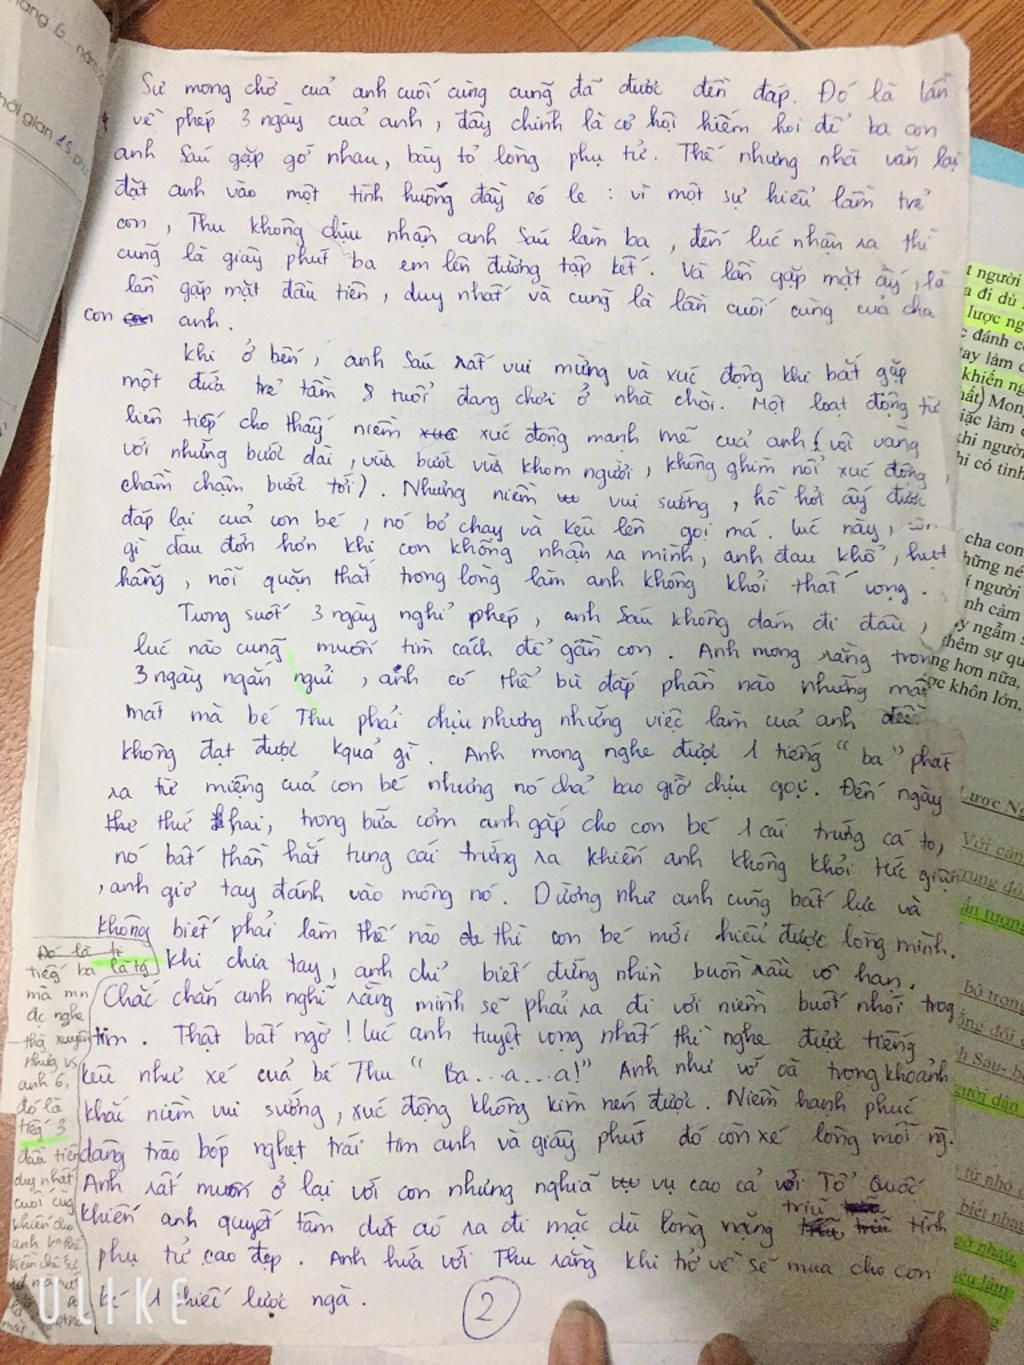 Sự mong chờ cuả anh cuối cùng cũng đã được đền đáp. Đó là lần
về phép 3 ngày cuả anh, đây chính là cơ hội hiếm hoi để ba con
anh Sáu gặp gỡ nhau, bày tỏ lòng phụ tử. Thế nhưng nhà văn lại
đặt anh vào một tình huống đầy éo le : vì một sự hiểu lầm trẻ
con, Thu không chịu nhận anh Sáu làm ba, đến lúc nhận ra thì
cũng là giây phút ba em lên đường tập kết. Và lần gặp mặt ấy, là
lần gặp mặt đầu tiên, duy nhất và cũng là lần cuối cùng cuả cha
con anh.
khi ở bến, anh Sáu rất vui mừng và xúc động khi bắt gặp
một đứa trẻ tầm 8 tuổi đang chơi ở nhà chòi. Một loạt động từ
liên tiếp cho thấy niềm xúc động mạnh mẽ cuả anh (vội vàng
với những bước dài, vừa bước vừa khom người, không ghìm nổi xúc động,
chầm chậm bước tới). Nhưng niềm vui sướng, hồ hởi ấy được
đáp lại cuả con bé, nó bỏ chạy và kêu lên gọi má. lúc này, còn
gì đau đớn hơn khi con không nhận ra mình, anh đau khổ, hụt
hẫng, nỗi quặn thắt trong lòng làm anh không khỏi thất vọng.
Trong suốt 3 ngày nghỉ phép, anh Sáu không dám đi đâu,
lúc nào cũng muốn tìm cách để gần con. Anh mong rằng trong
3 ngày ngắn ngủi, anh có thể bù đắp phần nào những mất
mát mà bé Thu phải chịu nhưng những việc làm cuả anh đều
không đạt được kquả gì. Anh mong nghe được 1 tiếng "ba" phát
ra từ miệng cuả con bé nhưng nó chả bao giờ chịu gọi. Đến ngày
thứ hai, trong bữa cơm anh gắp cho con bé 1 cái trứng cá to,
nó bất thần hất tung cái trứng ra khiến anh không khỏi tức giận
, anh giơ tay đánh vào mông nó. Dường như anh cũng bất lực và
không biết phải làm thế nào thì con bé mới hiểu được lòng mình.
khi chia tay, anh chỉ biết đứng nhìn buồn rầu vô hạn.
Chắc chắn anh nghĩ rằng mình sẽ phải ra đi với niềm buốt nhói trog
tim. Thật bất ngờ! lúc anh tuyệt vọng nhất thì nghe được tiếng
kêu như xé cuả bé Thu "Ba...a...a!" Anh như vỡ oà trong khoảnh
khắc niềm vui sướng, xúc động không kìm nén được. Niềm hạnh phúc
dâng trào bóp nghẹt trái tim anh và giây phút đó còn xé lòng mỗi ng.
Anh rất muốn ở lại với con nhưng nghĩa vụ cao cả với Tổ Quốc
khiến anh quyết tâm dứt áo ra đi mặc dù lòng nặng trĩu tình
phụ tử cao đẹp. Anh hứa với Thu rằng khi trở về sẽ mua cho con
bé 1 chiếc lược ngà.
2
tiếg ba là tg
mà mn
đc nghe
thg xuyên
nhưg vs
anh 6,
đó là
tiếg 3
đầu tiên
duy nhất
cuối cùg
khiến cho
anh
ULIKE
tháng 6 năm
hời gian
t người
a đi dù
lược ng
c đánh c
tay làm c
khiến ng
hất) Mon
iặc làm c
khi người
hi có tình
cha con
hững né
í người
nh cảm
y ngẫm
thêm sự qu
ng hơn nữa,
ợc khôn lớn,
Lược Ng
Với cản
trung đó
ấn tượng
bỏ trong
h Sáu- b
gười dân
từ nhỏ
biết nhau